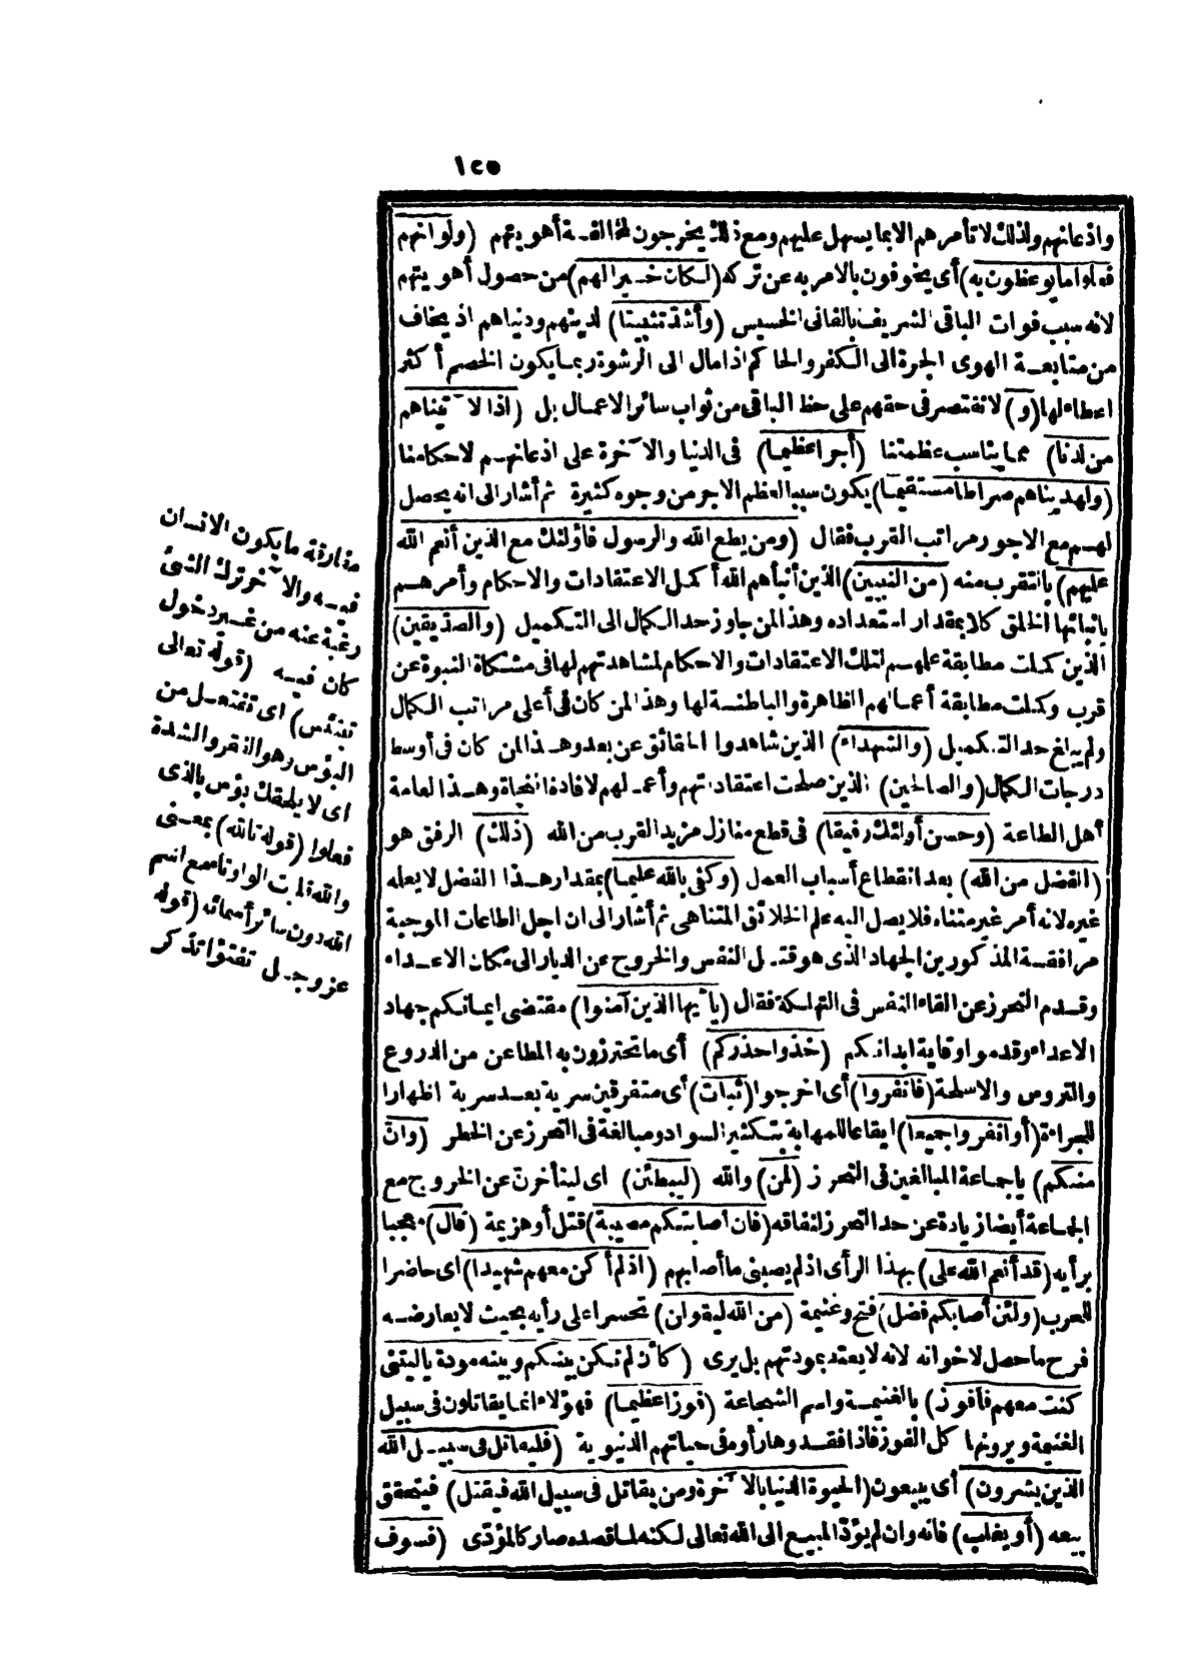 ١٥٥
واذعانهم ولذلك لا تأمرهم الا بما يسهل عليهم ومع ذلك يخرجون لمخالفة أهويتهم (ولو أنهم
فعلوا ما يوعظون به) أى يخوفون بالامر به عن تركه (لكان خيرا لهم) من حصول أهويتهم
لانه سبب فوات الباقى الشريف بالفانى الخسيس (وأشد تثبيتا) لدينهم ودنياهم اذ يخاف
من متابعة الهوى الجرة الى الكفر والحاكم اذا مال الى الرشوة ربما يكون الخصم أكثر
اعطاء لها (و) لا نقتصر فى حقهم على حظ الباقى من ثواب سائر الاعمال بل (اذا لآتيناهم
من لدنا) مما يناسب عظمتنا (أجرا عظيما) فى الدنيا والآخرة على اذعانهم لاحكامنا
(ولهديناهم صراطا مستقيما) يكون سببا لعظم الاجر من وجوه كثيرة ثم أشار الى انه يحصل
لهم مع الاجور مراتب القرب فقال (ومن يطع الله والرسول فأولئك مع الذين أنعم الله
عليهم) بالتقرب منه (من النبيين) الذين أنبأهم الله أكمل الاعتقادات والاحكام وأمرهم
بانبائها الخلق كلا بمقدار استعداده وهذا لمن جاوز حد الكمال الى التكميل (والصديقين)
الذين كملت مطابقة علمهم لتلك الاعتقادات والاحكام لمشاهدتهم لها فى مشكاة النبوة عن
قرب وكملت مطابقة أعمالهم الظاهرة والباطنة لها وهذا لمن كان فى أعلى مراتب الكمال
ولم يبلغ حد التكميل (والشهداء) الذين شاهدوا الحقائق عن بعد وهذا لمن كان فى أوسط
درجات الكمال (والصالحين) الذين صلحت اعتقاداتهم وأعمالهم لافادة النجاة وهذا لعامة
أهل الطاعة (وحسن أولئك رفيقا) فى قطع منازل مزيد القرب من الله (ذلك) الرفق هو
(الفضل من الله) بعد انقطاع أسباب العمل (وكفى بالله عليما) بمقدار هذا الفضل لا يعلمه
غيره لانه أمر غير متناه فلا يصل اليه علم الخلائق المتناهى ثم أشار الى ان اجل الطاعات الموجبة
مرافقة المذكورين الجهاد الذى هو قتل النفس والخروج عن الديار الى مكان الاعداء
وقدم التحرز عن القاء النفس فى التهلكة فقال (يا أيها الذين آمنوا) مقتضى ايمانكم جهاد
الاعداء وقدموا وقاية ابدانكم (خذوا حذركم) أى ما تحترزون به المطاعن من الدروع
والتروس والاسلحة (فانفروا) أى اخرجوا (ثبات) أى متفرقين سرية بعد سرية اظهارا
للجراءة (أو انفروا جميعا) ايقاعا للمهابة بتكثير السواد ومبالغة فى التحرز عن الخطر (وان
منكم) يا جماعة المبالغين فى التحرز (لمن) والله (ليبطئن) اى ليتأخرن عن الخروج مع
الجماعة أيضا زيادة عن حد التحرز لنفاقه (فان أصابتكم مصيبة) قتل أو هزيمة (قال) معجبا
برأيه (قد أنعم الله على) بهذا الرأى اذ لم يصبنى ما أصابهم (اذ لم أكن معهم شهيدا) اى حاضرا
للحرب (ولئن أصابكم فضل) فتح وغنيمة (من الله ليقولن) تحسرا على رأيه بحيث لا يعارضه
فرح ما حصل لاخوانه لانه لا يعتد بمودتهم بل يرى (كأن لم تكن بينكم وبينه مودة يا ليتنى
كنت معهم فأفوز) بالغنيمة واسم الشجاعة (فوزا عظيما) فهؤلاء انما يقاتلون فى سبيل
الغنيمة ويرونها كل الفوز فاذا فقدوها رأوه فى حياتهم الدنيوية (فليقاتل فى سبيل الله
الذين يشرون) أى يبيعون (الحيوة الدنيا بالآخرة ومن يقاتل فى سبيل الله فيقتل) فيتحقق
بيعه (أو يغلب) فانه وان لم يؤد المبيع الى الله تعالى لكنه لما قصده صار كالمؤدى (فسوف
مفارقة ما يكون الانسان
فيه والآخر ترك الشئ
رغبة عنه من غير دخول
كان فيه (قوله تعالى
تبتئس) اى تفتعل من
البؤس وهو الفقر والشدة
اى لا يلحقك بؤس بالذى
فعلوا (قوله تالله) بمعنى
والله قلبت الواو تاء مع اسم
الله دون سائر أسمائه (قوله
عز وجل تفتؤا تذكر